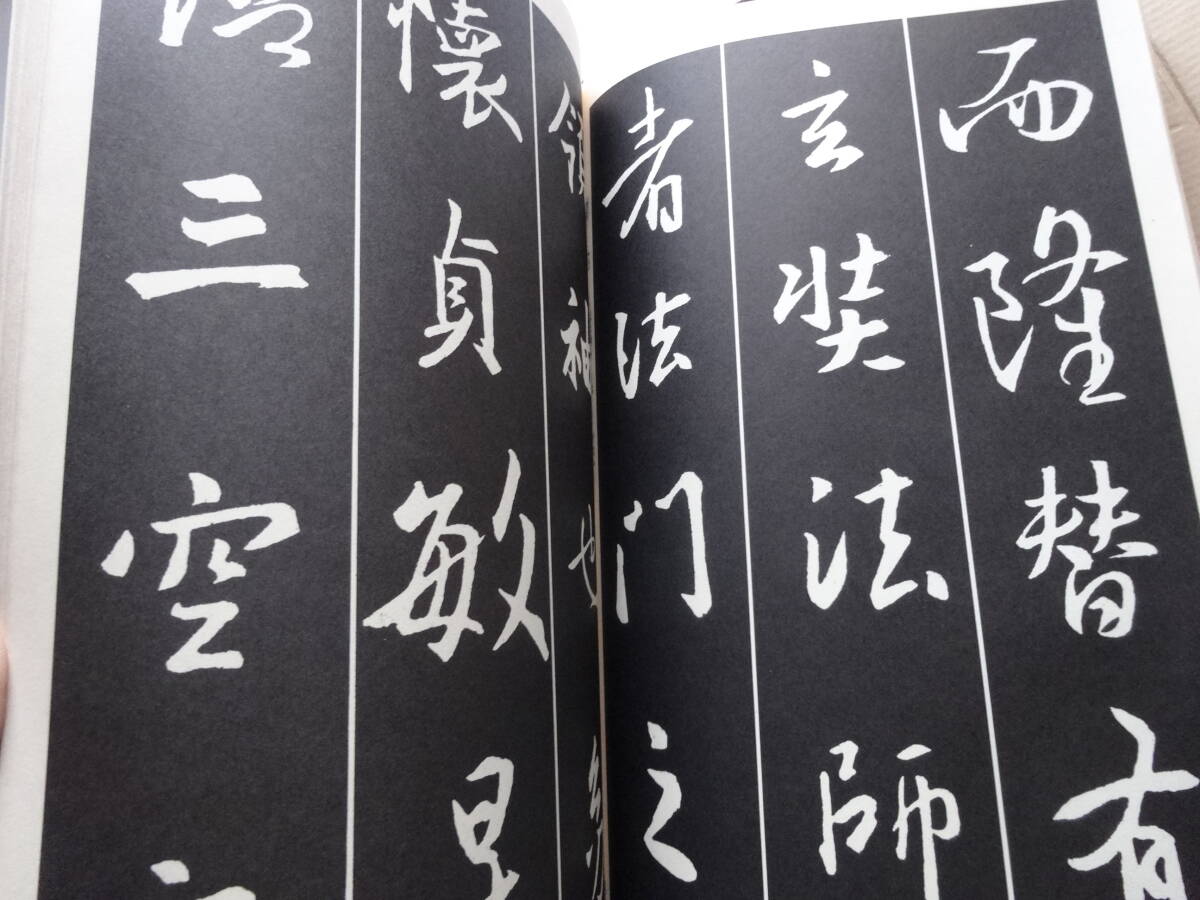 而隆替有
玄奘法師
者法門之
領袖也幼
懷貞敏早
三空